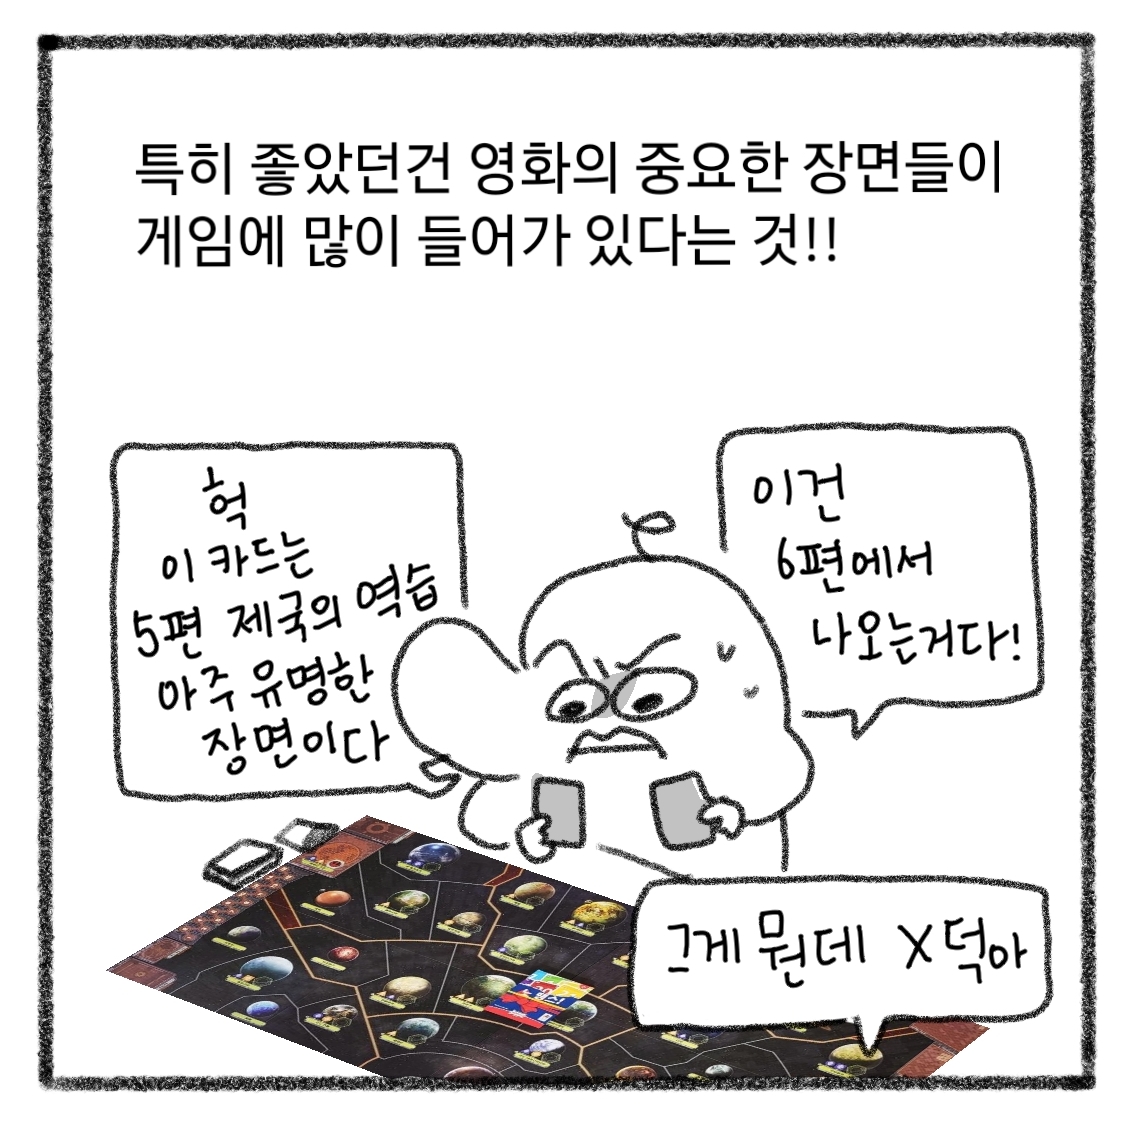 특히 좋았던건 영화의 중요한 장면들이
게임에 많이 들어가 있다는 것!!
헉
이 카드는
5편 제국의 역습
아주 유명한
장면이다
이건
6편에서
나오는거다!
그게 뭔데 X덕아